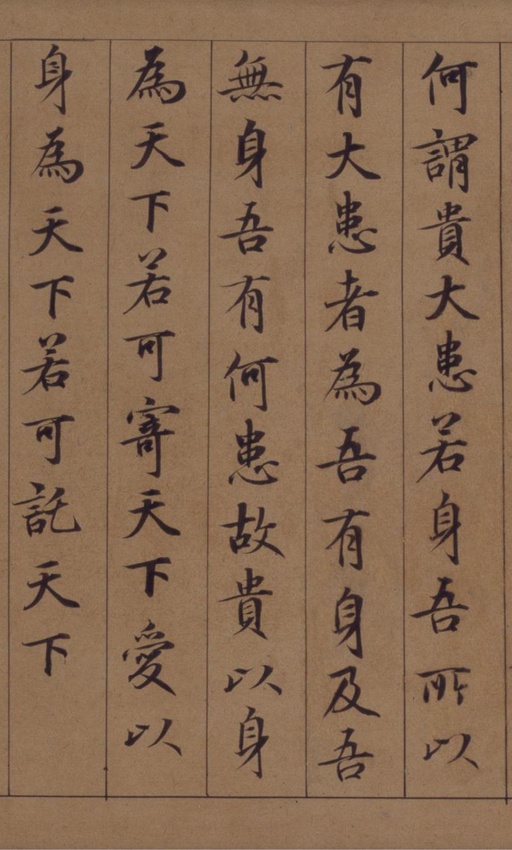 何謂貴大患若身吾所以
有大患者為吾有身及吾
無身吾有何患故貴以身
為天下若可寄天下愛以
身為天下若可託天下